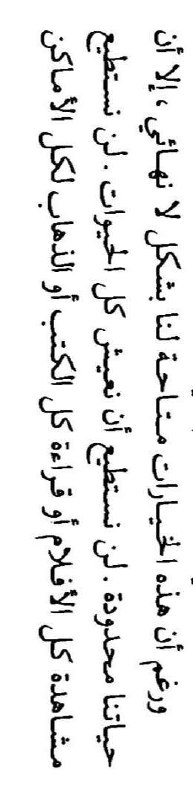 ورغم أن هذه الخيارات متاحة لنا بشكل لا نهائي، إلا أن
حياتنا محدودة. لن نستطيع أن نعيش كل الحيوات. لن نستطيع
مشاهدة كل الأفلام أو قراءة كل الكتب أو الذهاب لكل الأماكن